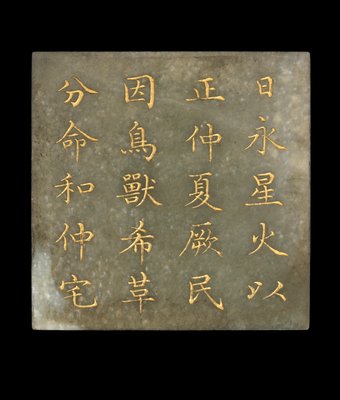 日永星火以
正仲夏厥民
因鳥獸希革
分命和仲宅